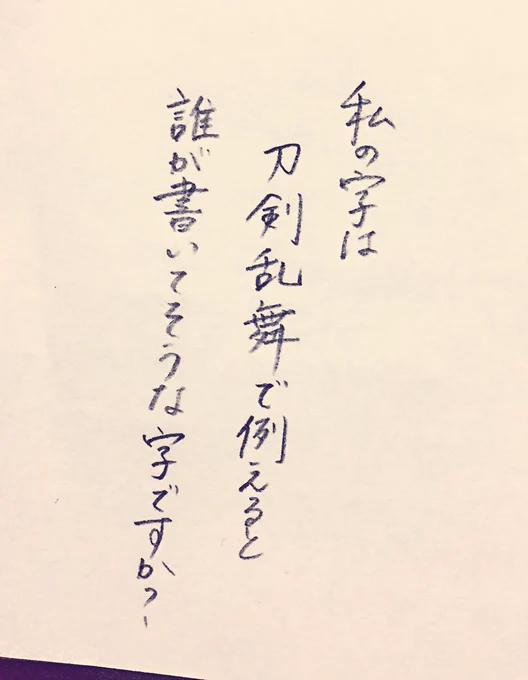 私の字は
刀剣乱舞で例えると
誰が書いてそうな字ですか?